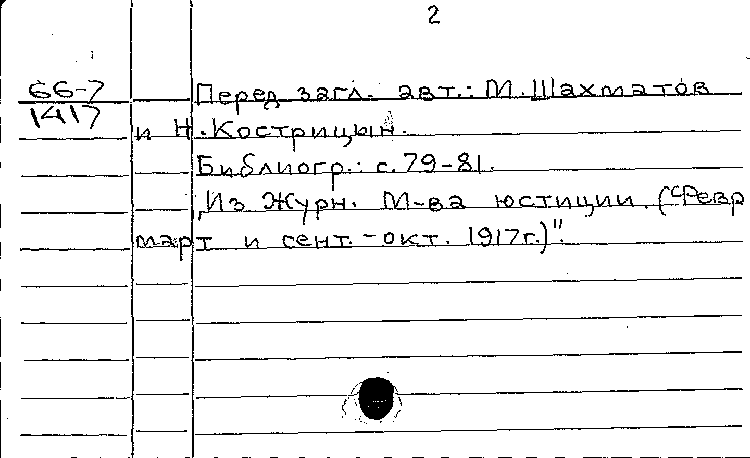 2
66-7
1417
Перед загл. авт.: М. Шахматов
и Н. Кострицын.
Библиогр.: с. 79-81.
„Из Журн. М-ва юстиции. (Февр
март и сент.-окт. 1917г.)".